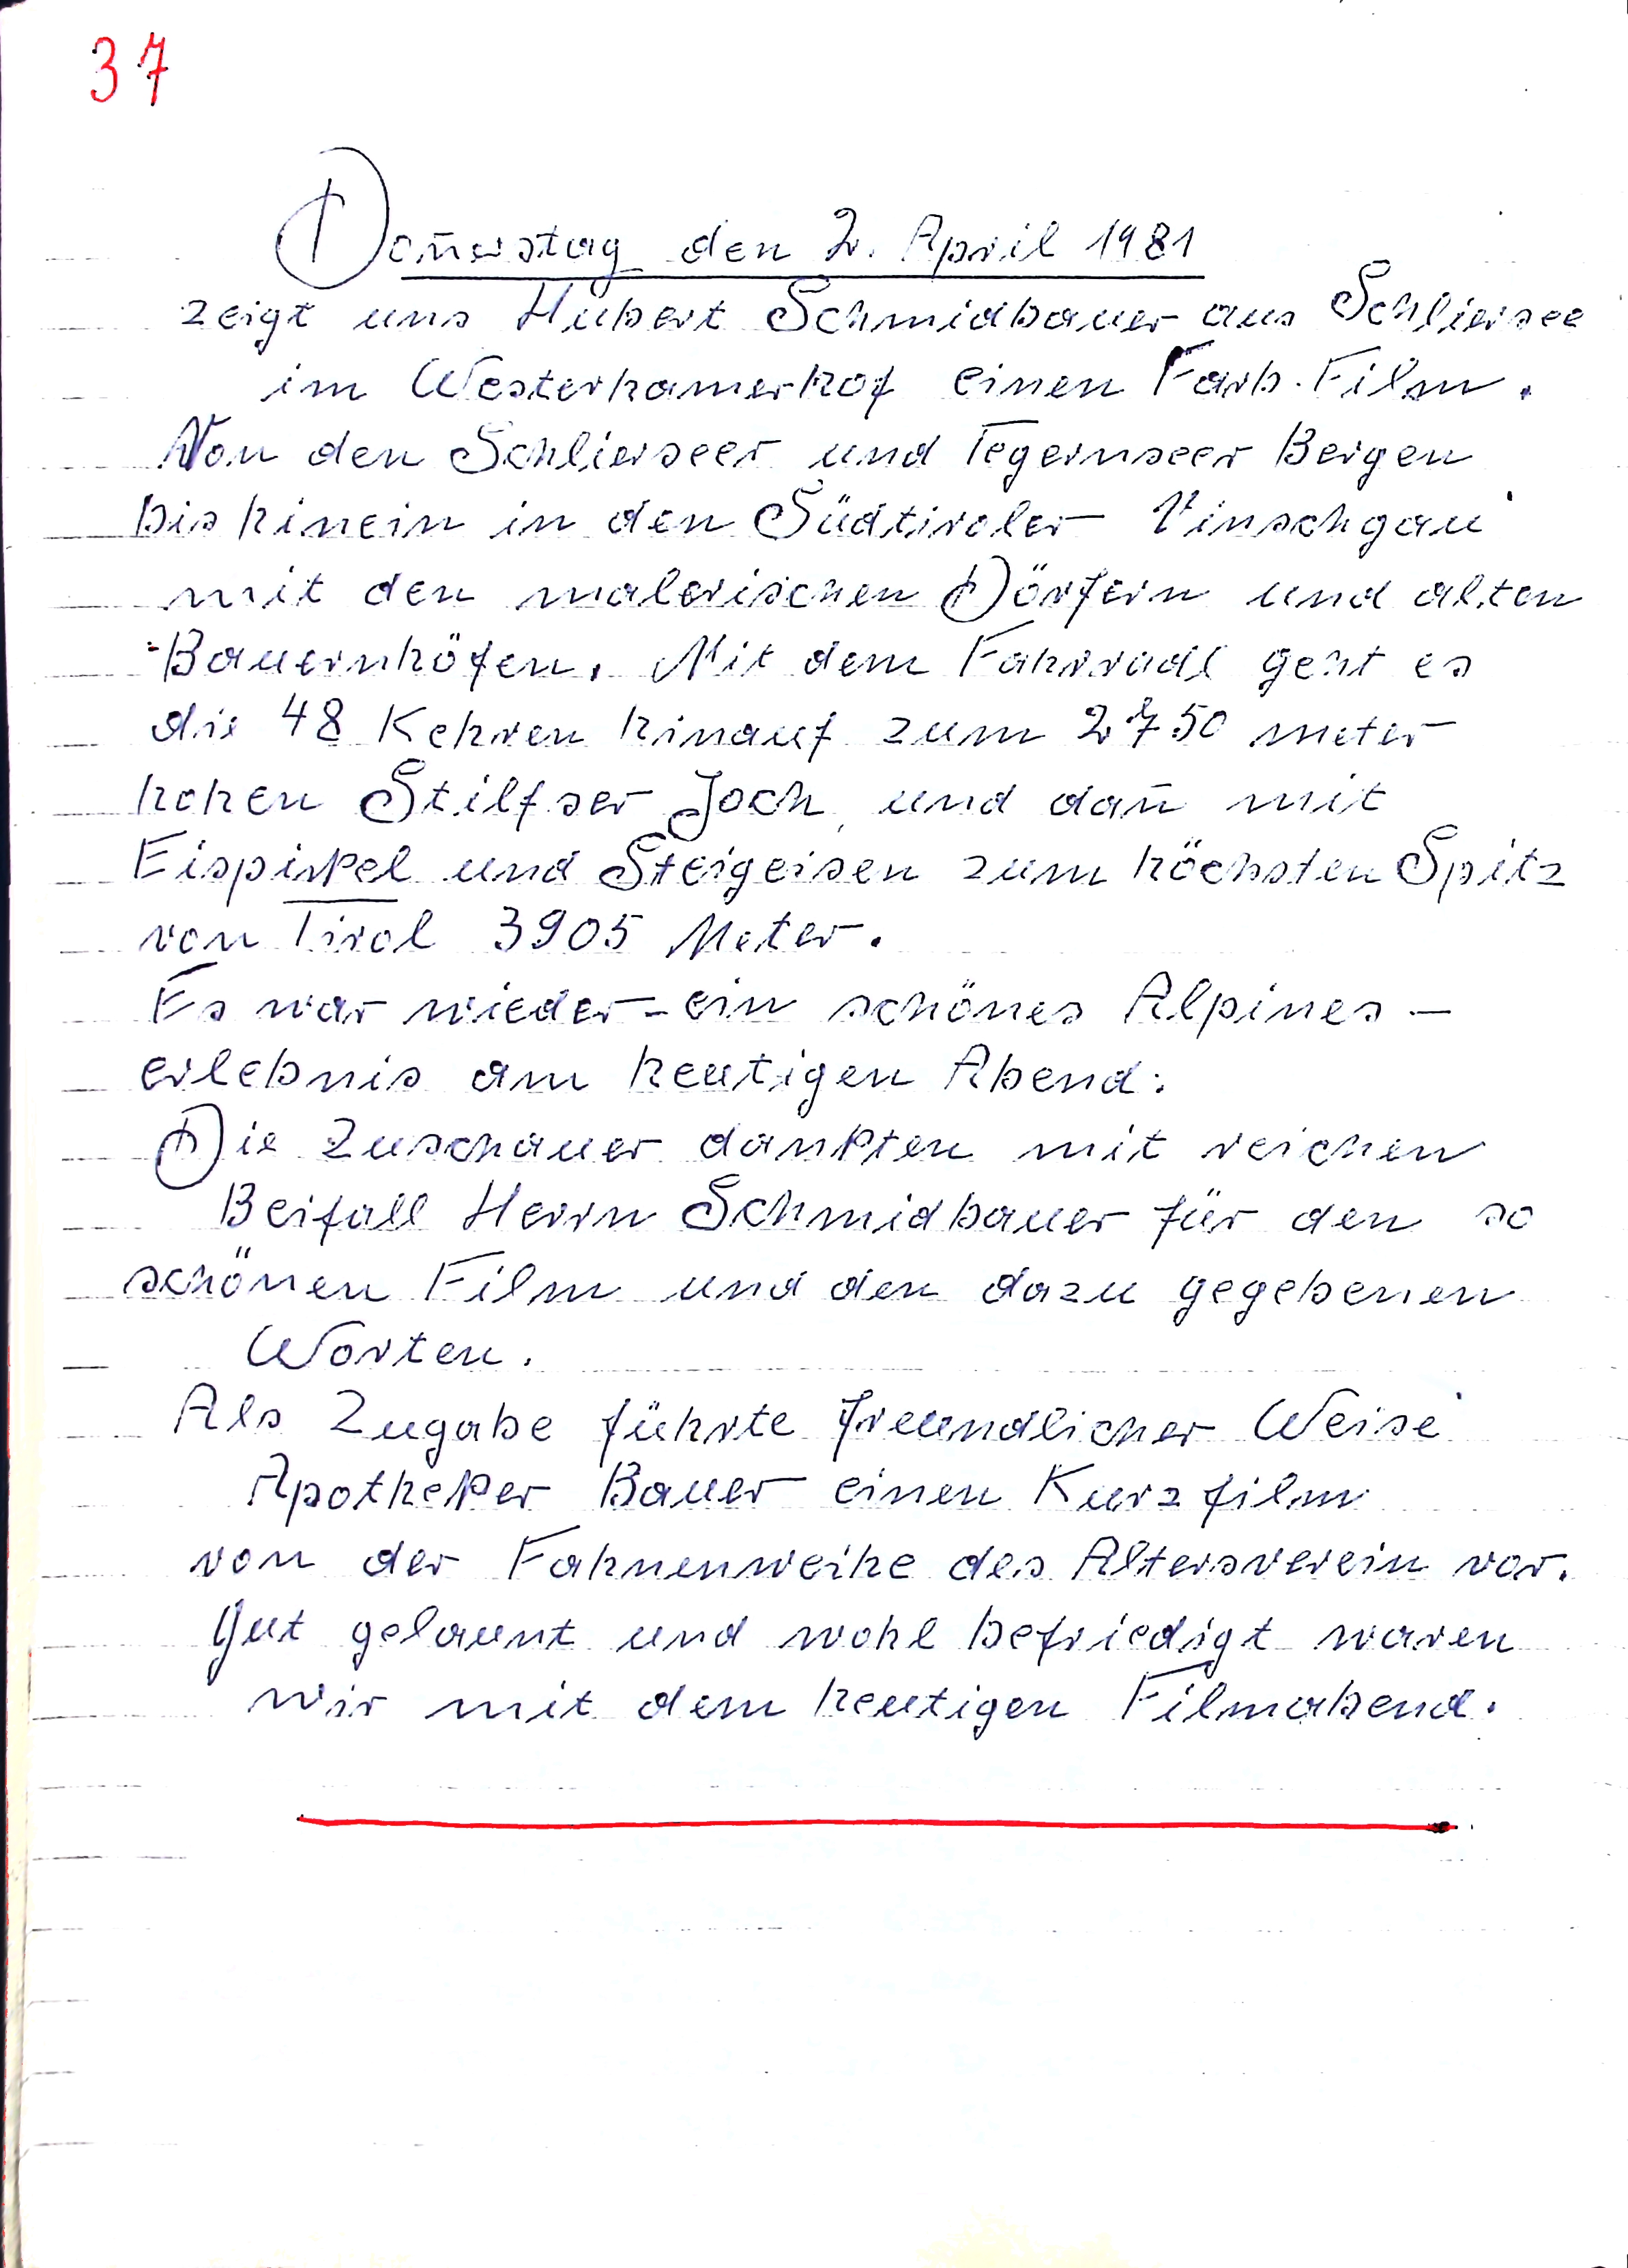 37
Doñerstag den 2. April 1981
zeigt uns Hubert Schmidbauer aus Schliersee
im Westerhamerhof einen Farb-Film.
Von den Schlierseer und Tegernseer Bergen
bis hinein in den Südtiroler Vinschgau
mit den malerischen Dörfern und alten
Bauernhöfen. Mit dem Fahrradl geht es
die 48 Kehren hinauf zum 2750 meter
hohen Stilfser Joch, und dañ mit
Eispikel und Steigeisen zum höchsten Spitz
von Tirol 3905 Meter.
Es war wieder-ein schönes Alpines-
erlebnis am heutigen Abend.
Die Zuschauer dankten mit reichen
Beifall Herrn Schmidbauer für den so
schönen Film und den dazu gegebenen
Worten.
Als Zugabe führte freundlicher Weise
Apotheker Bauer einen Kurzfilm
von der Fahnenweihe des Altersverein vor.
Gut gelaunt und wohl befriedigt waren
wir mit dem heutigen Filmabend.